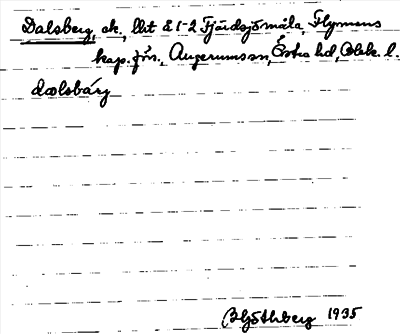 Dalsberg, ck., lht 81-2 Fjärdsjömåla, Flymens
kap. förs., Augerums sn, Östra hd, Blek. l.
dalsbárj
B Hjöthberg 1935